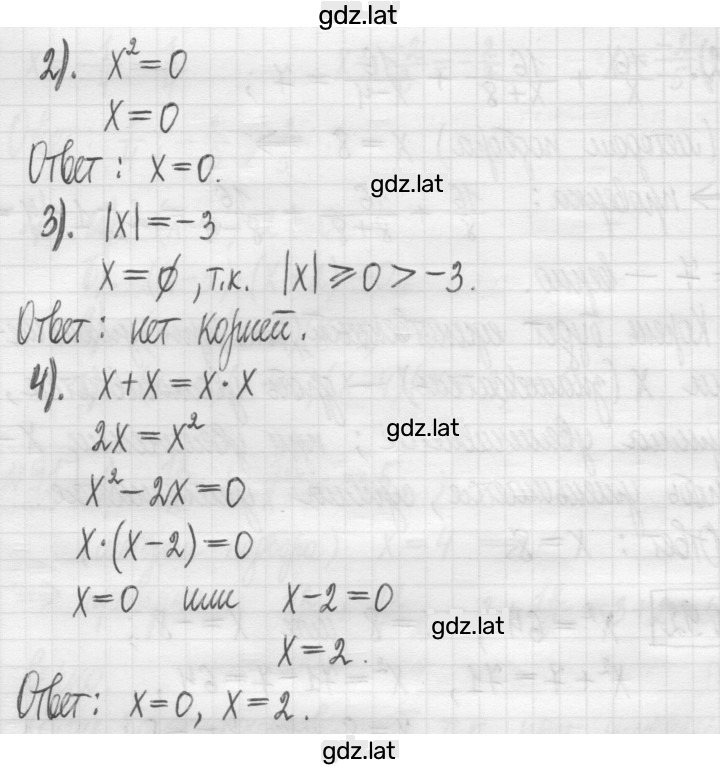 gdz.lat
2). x²=0
x=0
Ответ: x=0.
gdz.lat
3). |x|=-3
x=∅, т.к. |x|⩾0>-3.
Ответ: нет корней.
4). x+x=x·x
gdz.lat
2x=x²
x²-2x=0
x·(x-2)=0
x=0 или x-2=0
gdz.lat
x=2.
Ответ: x=0, x=2.
gdz.lat